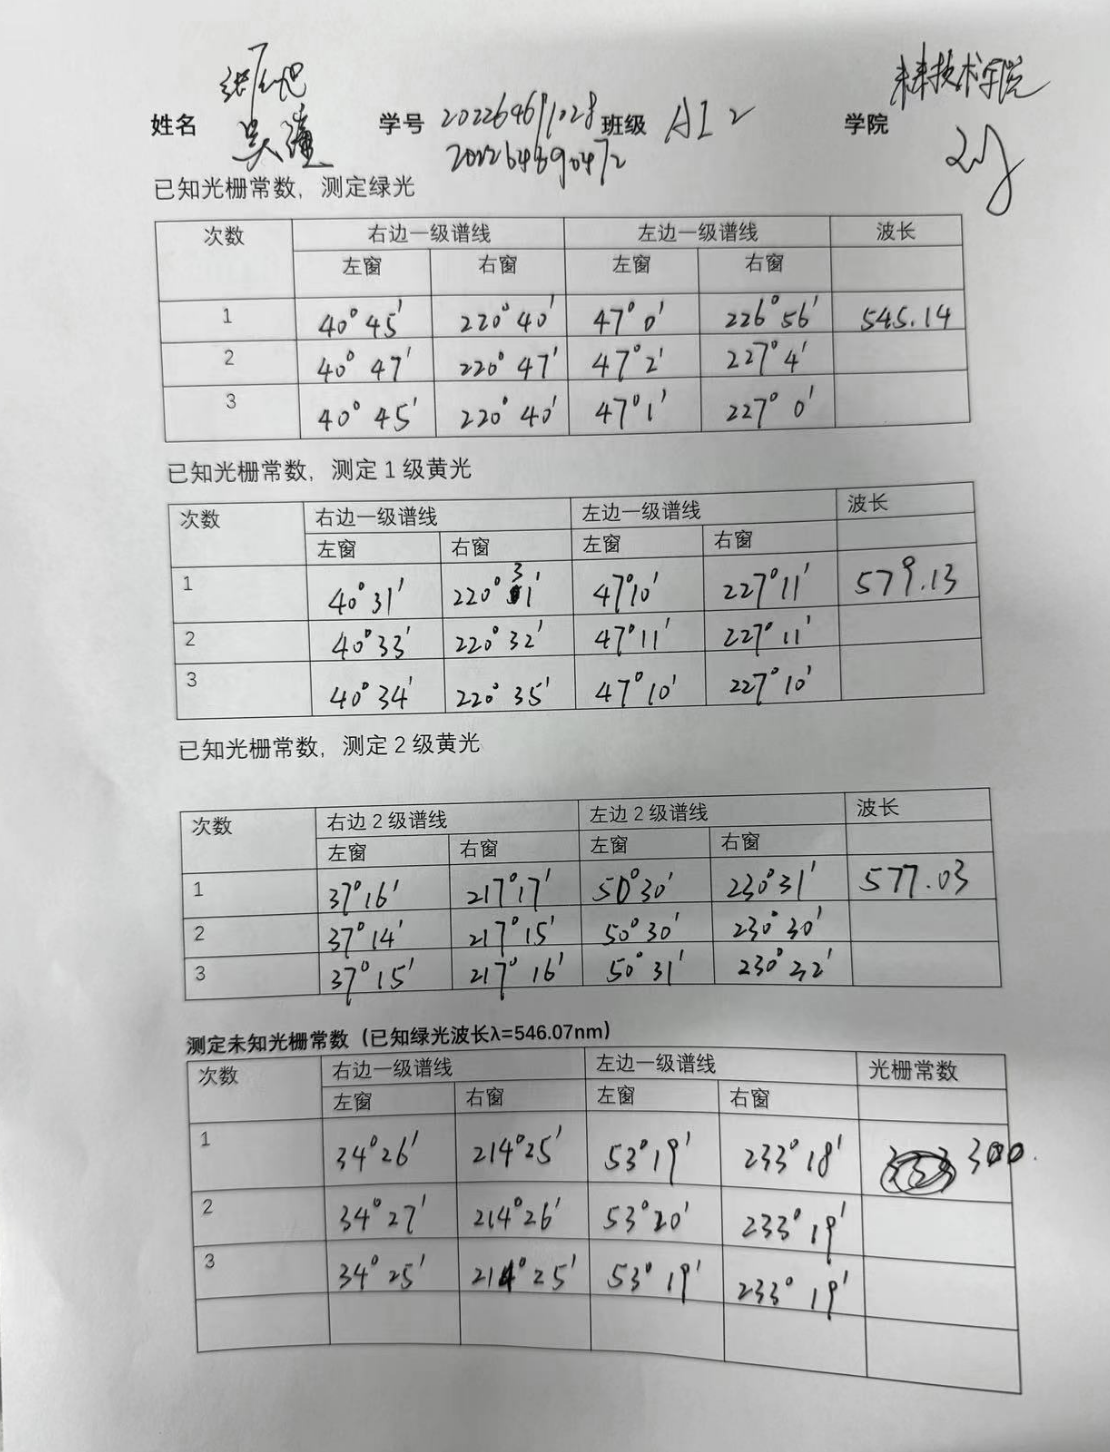 未来技术学院
姓名 学号 202264691028 班级 AI 2 学院
吴 202264690472
已知光栅常数，测定绿光
次数 右边一级谱线 左边一级谱线 波长
左窗 右窗 左窗 右窗
1 40°45' 220°40' 47°0' 226°56' 545.14
2 40°47' 220°47' 47°2' 227°4'
3 40°45' 220°40' 47°1' 227°0'
已知光栅常数，测定1级黄光
次数 右边一级谱线 左边一级谱线 波长
左窗 右窗 左窗 右窗
1 40°31' 220°31' 47°10' 227°11' 579.13
2 40°33' 220°32' 47°11' 227°11'
3 40°34' 220°35' 47°10' 227°10'
已知光栅常数，测定2级黄光
次数 右边2级谱线 左边2级谱线 波长
左窗 右窗 左窗 右窗
1 37°16' 217°17' 50°30' 230°31' 577.03
2 37°14' 217°15' 50°30' 230°30'
3 37°15' 217°16' 50°31' 230°32'
测定未知光栅常数（已知绿光波长λ=546.07nm）
次数 右边一级谱线 左边一级谱线 光栅常数
左窗 右窗 左窗 右窗
1 34°26' 214°25' 53°19' 233°18' 300
2 34°27' 214°26' 53°20' 233°19'
3 34°25' 214°25' 53°19' 233°19'